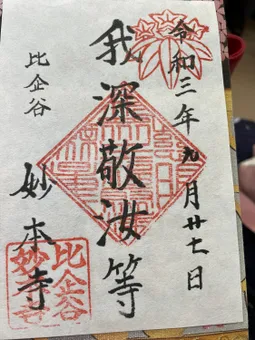 令和三年九月廿七日
我深敬汝等
比企谷
妙本寺
比企谷
妙本寺